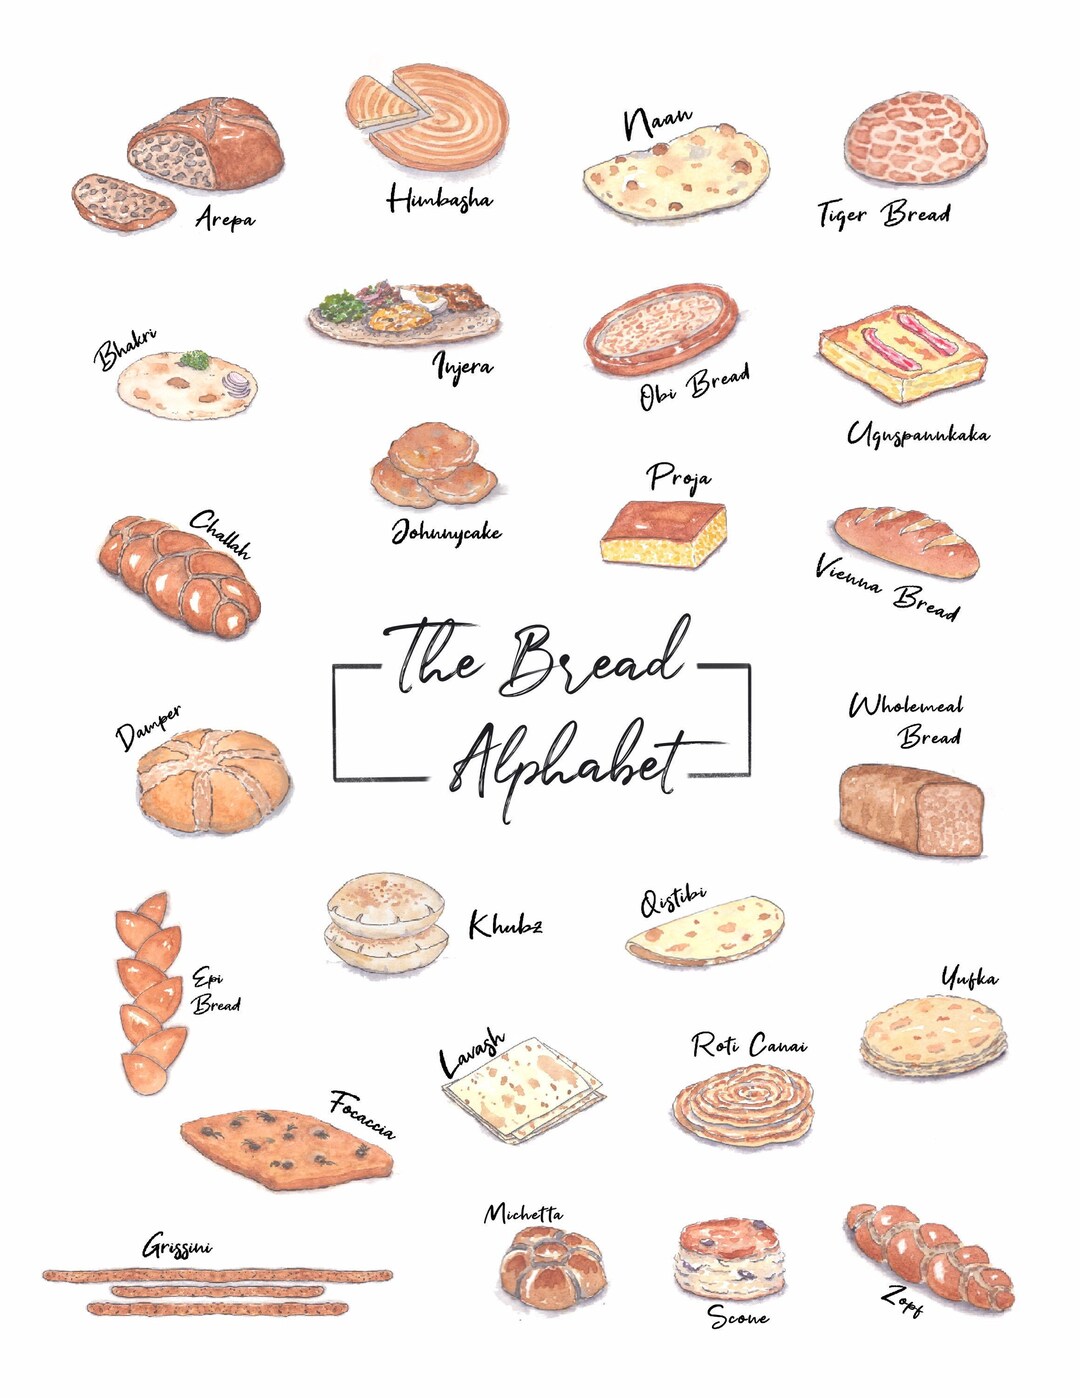 Arepa
Himbasha
Naan
Tiger Bread
Bhakri
Injera
Obi Bread
Ugnspannkaka
Challah
Johnnycake
Proja
Vienna Bread
The Bread
Alphabet
Damper
Wholemeal
Bread
Epi
Bread
Khubz
Qistibi
Yufka
Lavash
Roti Canai
Focaccia
Grissini
Michetta
Scone
Zopf